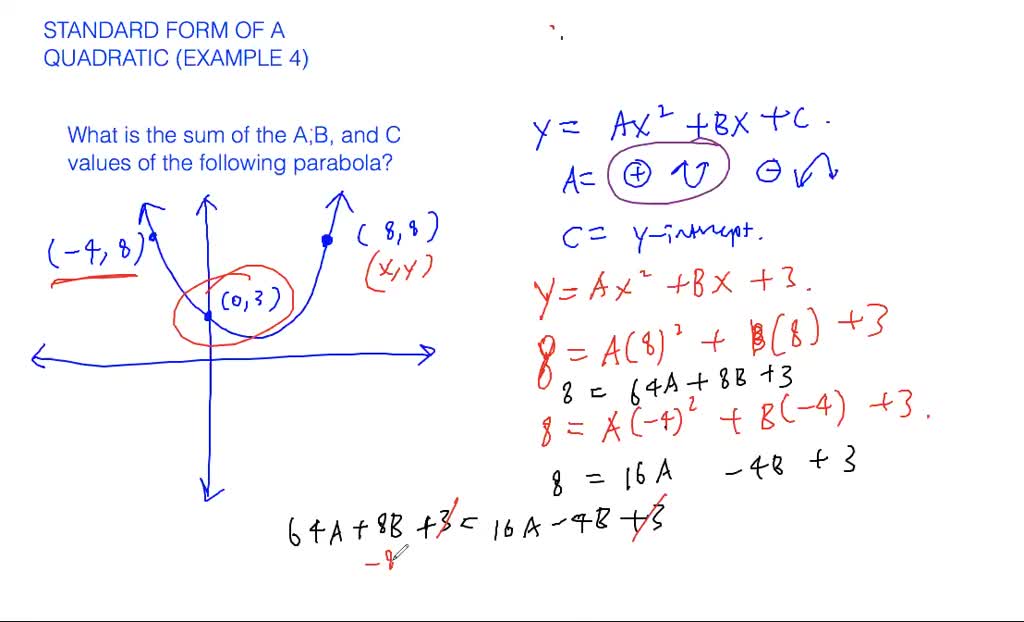 STANDARD FORM OF A
QUADRATIC (EXAMPLE 4)
What is the sum of the A,B, and C
values of the following parabola?
(-4, 8)
(0,3)
(8,8)
(x,y)
y = Ax² + Bx + C.
A = ⊕ ⊖
C = y-intercept.
y = Ax² + Bx + 3.
8 = A(8)² + B(8) + 3
8 = 64A + 8B + 3
8 = A(-4)² + B(-4) + 3.
8 = 16A - 4B + 3
64A + 8B + 3 = 16A - 4B + 3
-8